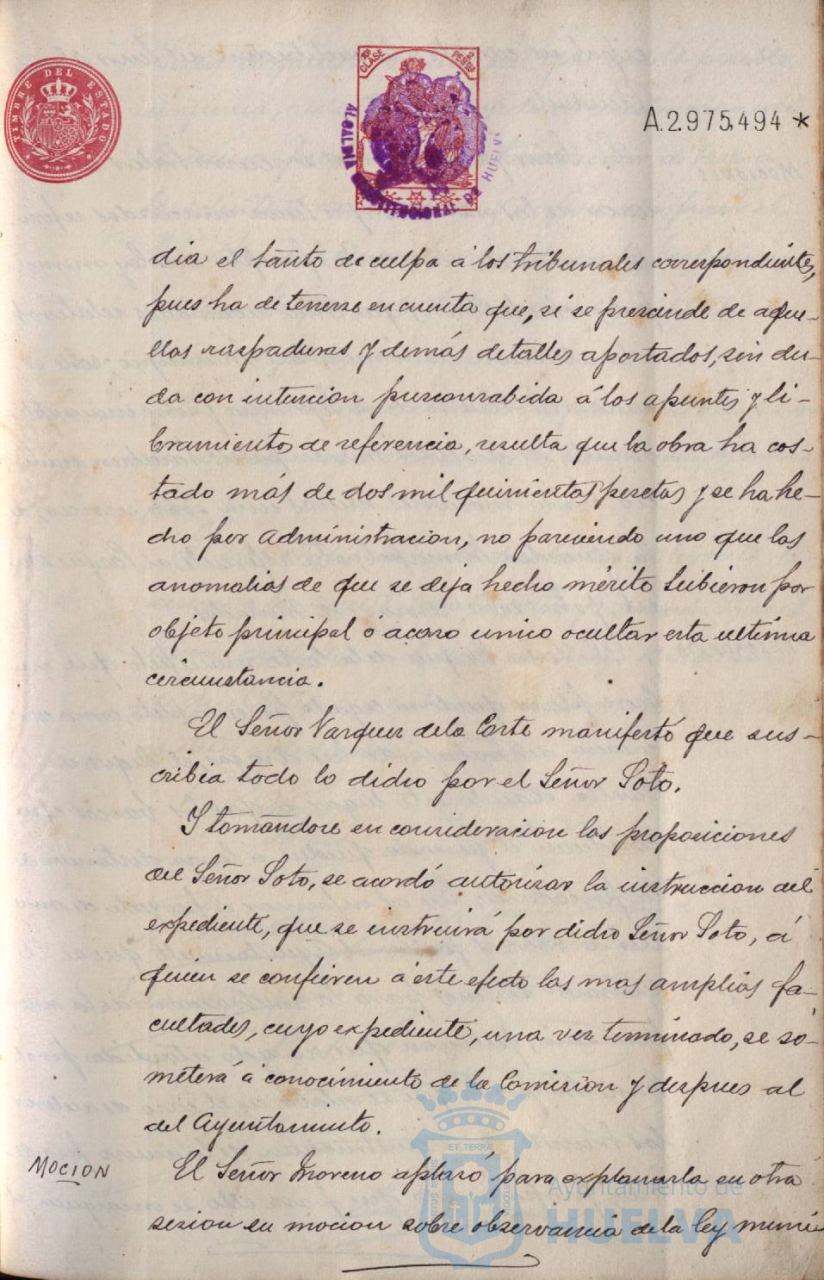 TIMBRE DEL ESTADO
CLASE
ALCALDIA CONSTITUCIONAL DE HUELVA
A.2.975,494 *
dia el tanto de culpa á los tribunales correspondientes,
pues ha de tenerse en cuenta que, si se prescinde de aque-
llas raspaduras y demás detalles aportados, sin du-
da con intencion preconcebida á los apuntes y li-
bramientos de referencia, resulta que la obra ha cos-
tado más de dos mil quinientas pesetas y se ha he-
cho por administracion, no pareciendo sino que las
anomalias de que se deja hecho mérito tubieron por
objeto principal ó acaso unico ocultar esta ultima
circunstancia.
El Señor Vazquez de la Corte manifestó que sus-
cribia todo lo dicho por el Señor Soto.
Y tomándose en consideracion las proposiciones
del Señor Soto, se acordó autorizar la instruccion del
expediente, que se instruirá por dicho Señor Soto, á
quien se confieren á este efecto las mas amplias fa-
cultades, cuyo expediente, una vez terminado, se so-
meterá á conocimiento de la Comision y despues al
del Ayuntamiento.
MOCION
El Señor Moreno aplazó para explanarla en otra
sesion su mocion sobre observancia de la ley muni
ET TERRA
Ayuntamiento de
HUELVA